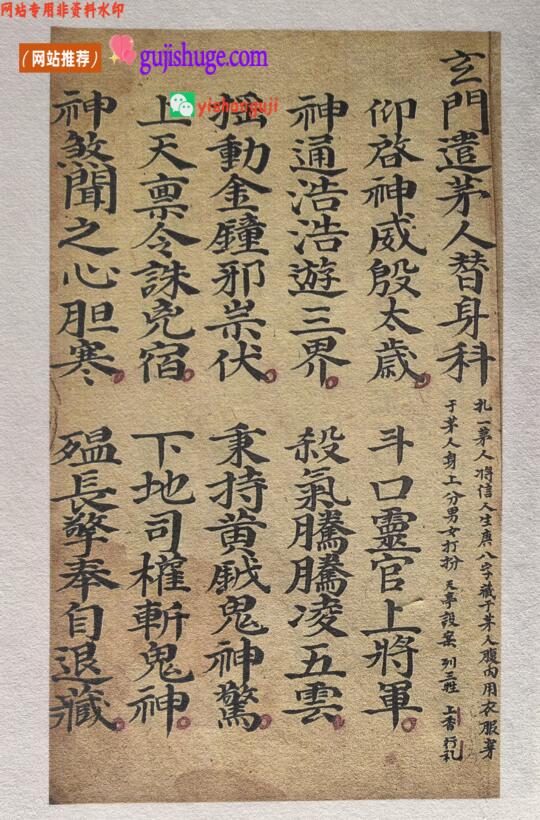 网站专用非资料水印
（网站推荐） gujishuge.com
yishanguji
玄門遣茅人替身科
扎一茅人 將信人生庚八字藏于茅人腹內用衣服穿
于茅人身上分男女打扮 天亭設案 列三牲 上香行礼
仰啓神威殷太歲 斗口靈官上將軍
神通浩浩遊三界 殺氣騰騰凌五雲
搖動金鐘邪祟伏 秉持黄鉞鬼神驚
上天禀令誅兇宿 下地司權斬鬼神
神煞聞之心胆寒 瘟長擎奉自退藏